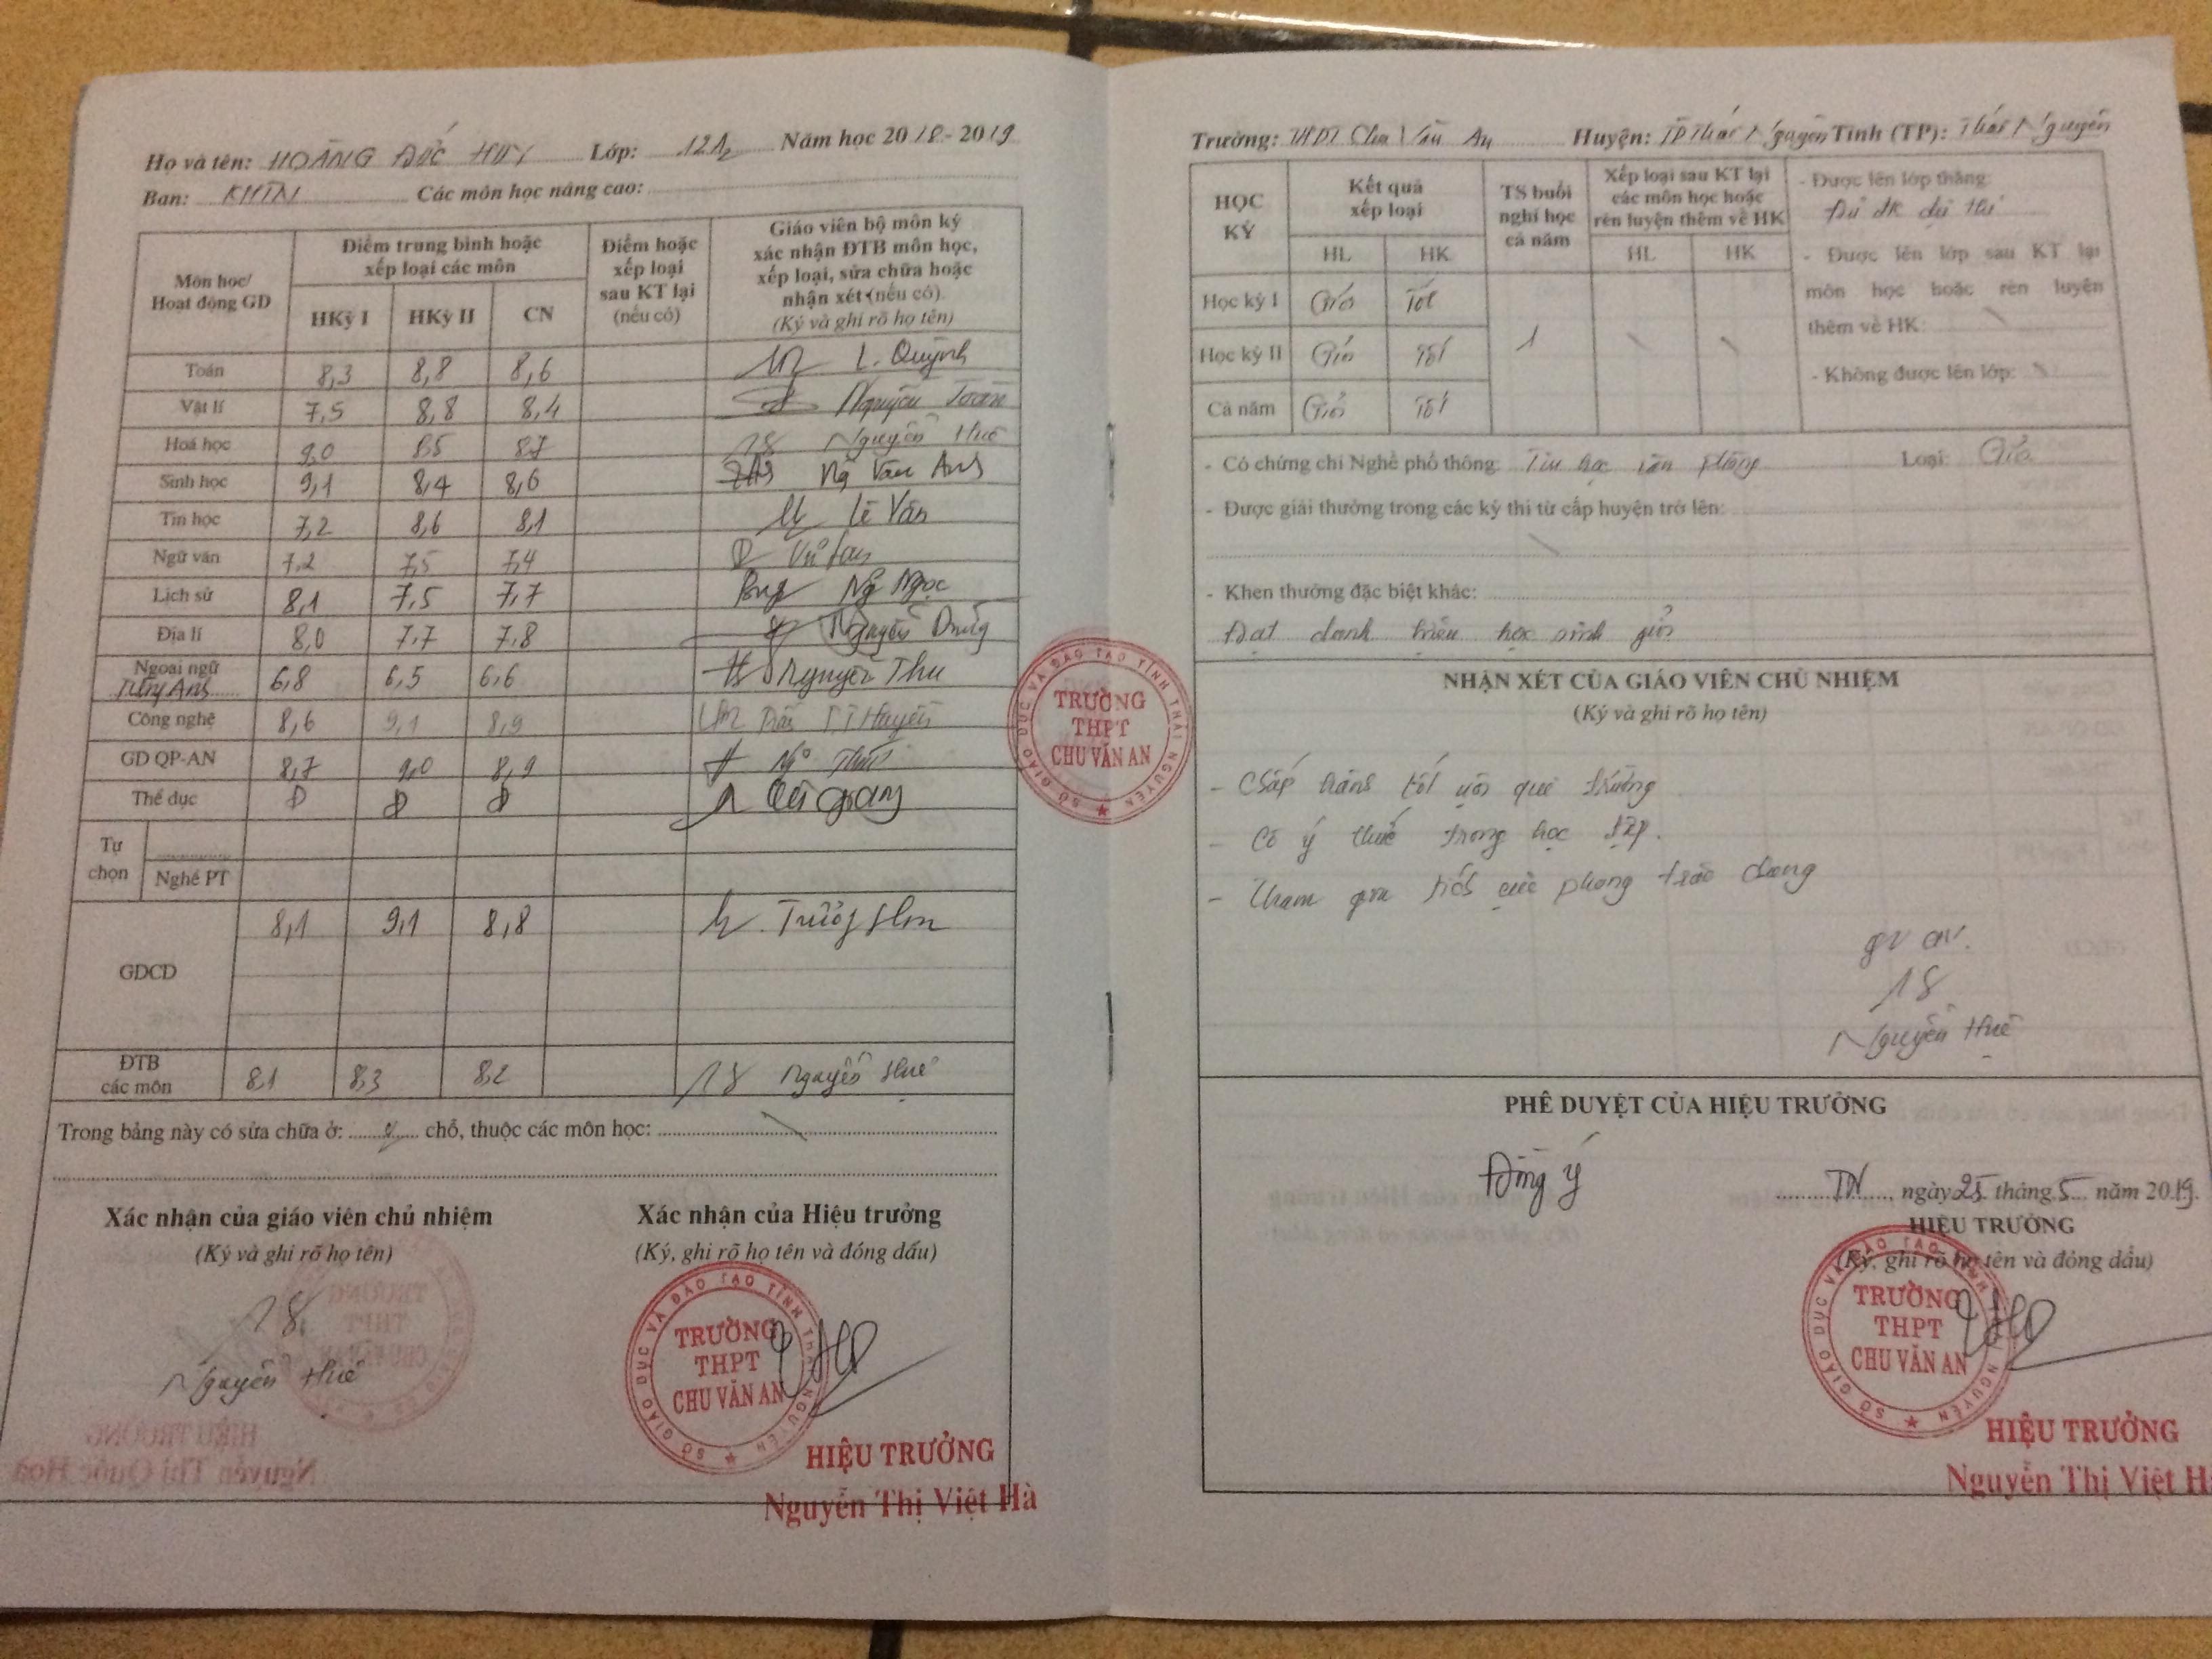 Họ và tên: HOÀNG ĐỨC HUY Lớp: 12A2 Năm học 2018 - 2019
Ban: KHTN Các môn học nâng cao:
Môn học/ Hoạt động GD
Điểm trung bình hoặc xếp loại các môn
HKỳ I HKỳ II CN
Điểm hoặc xếp loại sau KT lại (nếu có)
Giáo viên bộ môn ký xác nhận ĐTB môn học, xếp loại, sửa chữa hoặc nhận xét (nếu có).
(Ký và ghi rõ họ tên)
Toán 8,3 8,8 8,6 L. Quỳnh
Vật lí 7,5 8,8 8,4 Nguyễn Toàn
Hoá học 9,0 8,5 8,7 Nguyễn Huê
Sinh học 9,1 8,4 8,6 Ng Vân Anh
Tin học 7,2 8,6 8,1 Lê Vân
Ngữ văn 7,2 7,5 7,4
Lịch sử 8,1 7,5 7,7 Ng Ngọc
Địa lí 8,0 7,7 7,8 Nguyễn Dung
Ngoại ngữ Tiếng Anh 6,8 6,5 6,6 Nguyễn Thu
Công nghệ 8,6 9,1 8,9 Huyền
GD QP-AN 8,7 9,0 8,9 Ngô
Thể dục Đ Đ Đ
Tự chọn
Nghề PT
GDCD 8,1 9,1 8,8
ĐTB các môn 8,1 8,3 8,2 Nguyễn Huê
Trong bảng này có sửa chữa ở: 0 chỗ, thuộc các môn học:
Xác nhận của giáo viên chủ nhiệm
(Ký và ghi rõ họ tên)
Nguyễn Huê
Xác nhận của Hiệu trưởng
(Ký, ghi rõ họ tên và đóng dấu)
SỞ GIÁO DỤC VÀ ĐÀO TẠO TỈNH THÁI NGUYÊN
TRƯỜNG
THPT
CHU VĂN AN
HIỆU TRƯỞNG
Nguyễn Thị Việt Hà
SỞ GIÁO DỤC VÀ ĐÀO TẠO TỈNH THÁI NGUYÊN
TRƯỜNG
THPT
CHU VĂN AN
Trường: THPT Chu Văn An Huyện: TP Thái Nguyên Tỉnh (TP): Thái Nguyên
HỌC KỲ
Kết quả xếp loại
HL HK
TS buổi nghỉ học cả năm
Xếp loại sau KT lại các môn học hoặc rèn luyện thêm về HK
HL HK
Học kỳ I Giỏi Tốt
Học kỳ II Giỏi Tốt
Cả năm Giỏi Tốt
1
- Được lên lớp thẳng:
Đủ đk dự thi
- Được lên lớp sau KT lại
môn học hoặc rèn luyện
thêm về HK:
- Không được lên lớp:
- Có chứng chỉ Nghề phổ thông: Tin học văn phòng Loại: Giỏi
- Được giải thưởng trong các kỳ thi từ cấp huyện trở lên:
- Khen thưởng đặc biệt khác:
Đạt danh hiệu học sinh giỏi
NHẬN XÉT CỦA GIÁO VIÊN CHỦ NHIỆM
(Ký và ghi rõ họ tên)
- Chấp hành tốt nội qui trường
- Có ý thức trong học tập.
- Tham gia tích cực phong trào chung
GVCN.
Nguyễn Huê
PHÊ DUYỆT CỦA HIỆU TRƯỞNG
Đồng ý
TN, ngày 25 tháng 5 năm 2019.
HIỆU TRƯỞNG
(Ký, ghi rõ họ tên và đóng dấu)
SỞ GIÁO DỤC VÀ ĐÀO TẠO TỈNH THÁI NGUYÊN
TRƯỜNG
THPT
CHU VĂN AN
HIỆU TRƯỞNG
Nguyễn Thị Việt H